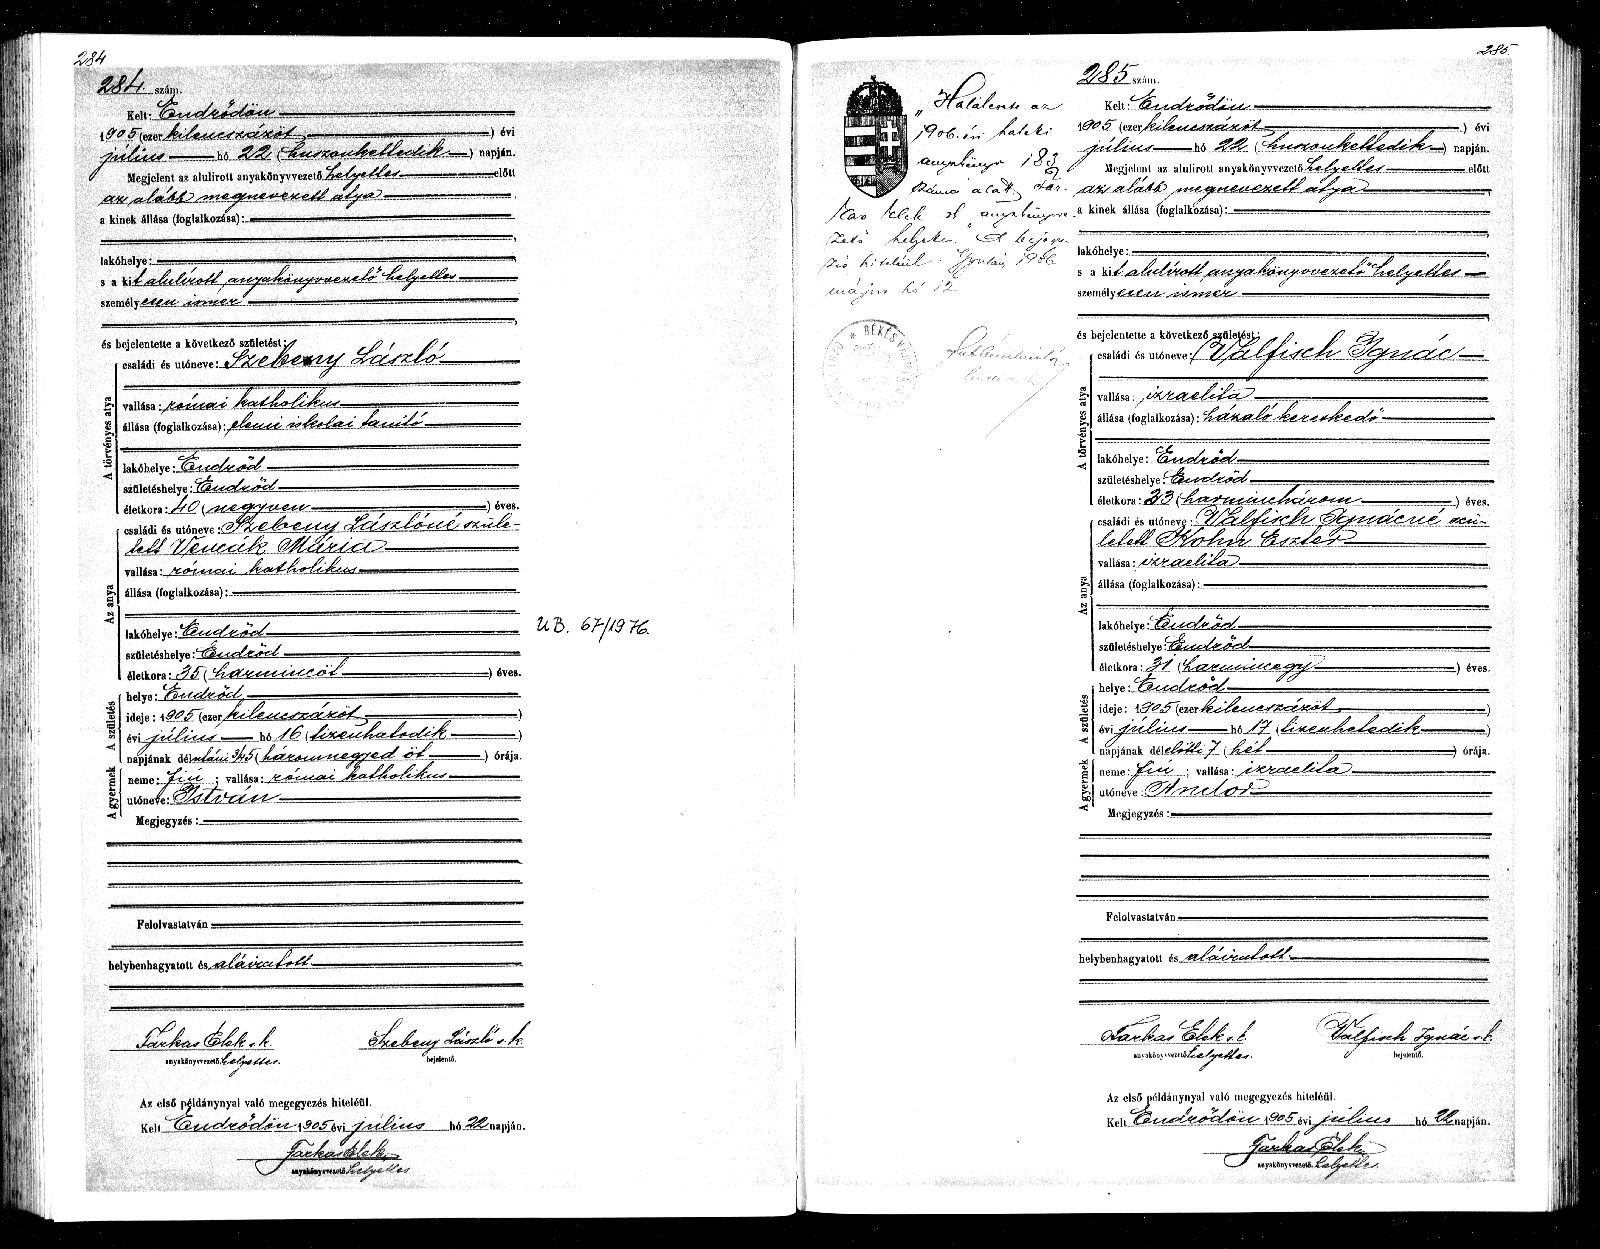 284
284 szám.
Kelt: Endrődön
1905 (ezer kilencszázöt) évi
július hó 22 (huszonkettedik) napján.
Megjelent az alulirott anyakönyvvezető helyettes előtt
az alább megnevezett atya
a kinek állása (foglalkozása):
lakóhelye:
s a kit alulírott anyakönyvvezető helyettes
személyesen ismer
és bejelentette a következő születést:
A törvényes atya
családi és utóneve: Szebeny László
vallása: római katholikus
állása (foglalkozása): elemi iskolai tanító
lakóhelye: Endrőd
születéshelye: Endrőd
életkora: 40 (negyven) éves.
Az anya
családi és utóneve: Szebeny Lászlóné szüle-
tett Vencák Mária
vallása: római katholikus
állása (foglalkozása):
lakóhelye: Endrőd
születéshelye: Endrőd
életkora: 35 (harmincöt) éves.
A születés
helye: Endrőd
ideje: 1905 (ezer kilencszázöt)
évi július hó 16 (tizenhatodik)
napjának délutáni 3/45 (háromnegyed öt) órája.
A gyermek
neme: fiú; vallása: római katholikus
utóneve: István
Megjegyzés:
Felolvastatván
helybenhagyatott és aláiratott
Farkas Elek s. k.
anyakönyvvezető helyettes.
Szebeny László s. k.
bejelentő.
Az első példánynyal való megegyezés hiteléül.
Kelt Endrődön 1905 évi július hó 22 napján.
Farkas Elek
anyakönyvvezető helyettes
UB. 67/1976.
285.
"Haláleset az
1906. évi haláli
anyakönyv 183
száma alatt. Far-
kas Elek sk anyakönyvve-
zető helyettes." A bejegy-
zés hiteléül. Gyulán, 1906
május hó 12
BÉKÉS
285 szám.
Kelt: Endrődön
1905 (ezer kilencszázöt) évi
július hó 22. (huszonkettedik) napján.
Megjelent az alulirott anyakönyvvezető helyettes előtt
az alább megnevezett atya
a kinek állása (foglalkozása):
lakóhelye:
s a kit alulírott anyakönyvvezető helyettes
személyesen ismer
és bejelentette a következő születést:
A törvényes atya
családi és utóneve: Valfisch Ignác
vallása: izraelita
állása (foglalkozása): házaló kereskedő
lakóhelye: Endrőd
születéshelye: Endrőd
életkora: 33 (harminchárom) éves.
Az anya
családi és utóneve: Valfisch Ignácné szü-
letett Kohn Eszter
vallása: izraelita
állása (foglalkozása):
lakóhelye: Endrőd
születéshelye: Endrőd
életkora: 31 (harmincegy) éves.
A születés
helye: Endrőd
ideje: 1905 (ezer kilencszázöt)
évi július hó 17 (tizenhetedik)
napjának délelőtti 7 (hét) órája.
A gyermek
neme: fiú; vallása: izraelita
utóneve: Andor
Megjegyzés:
Felolvastatván
helybenhagyatott és aláiratott
Farkas Elek s. k.
anyakönyvvezető helyettes.
Valfisch Ignác s. k.
bejelentő.
Az első példánynyal való megegyezés hiteléül.
Kelt Endrődön 1905 évi július hó 22 napján.
Farkas Elek
anyakönyvvezető helyettes.